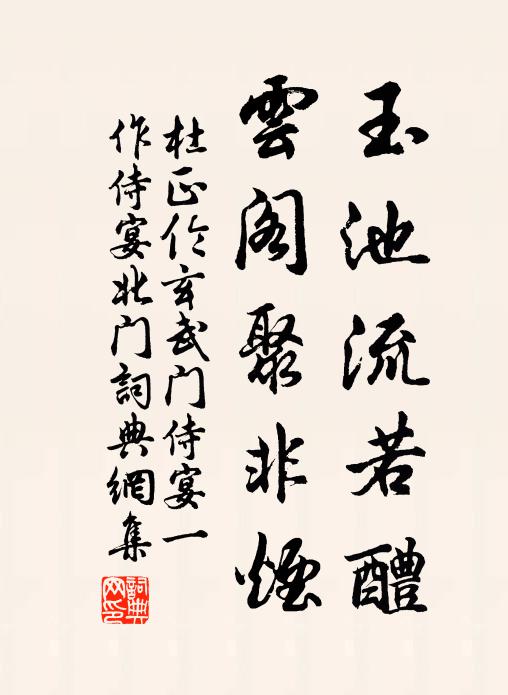 玉池流若醴
雲閣聚非煙
杜正伦玄武門侍宴一
作侍宴北門詞典網集